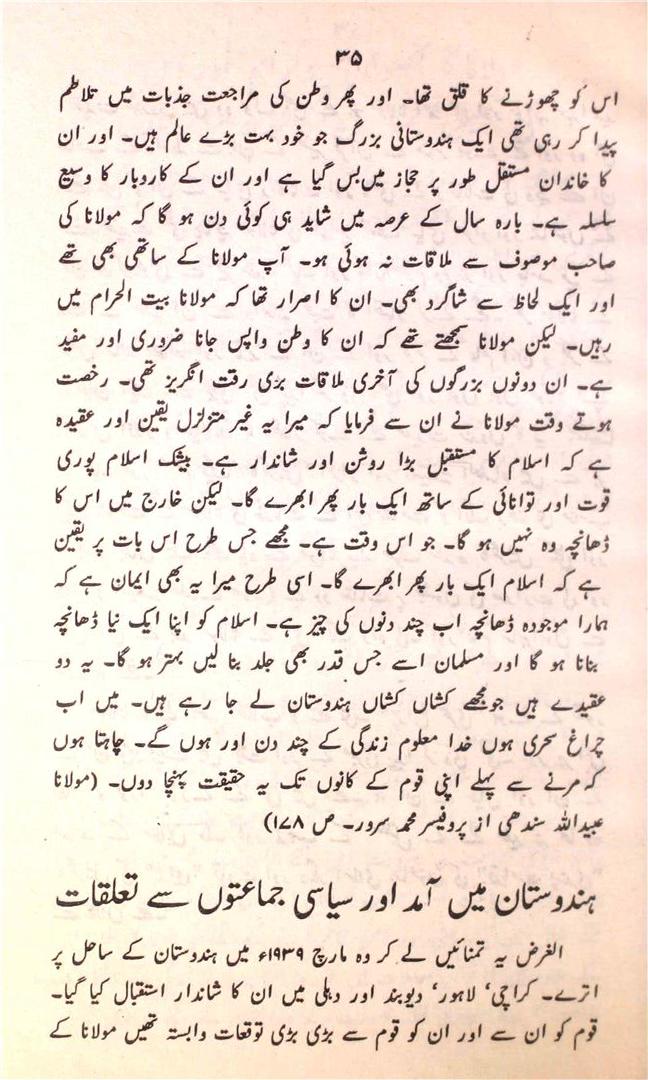 ۳۵
اس کو چھوڑنے کا قلق تھا۔ اور پھر وطن کی مراجعت جذبات میں تلاطم
پیدا کر رہی تھی ایک ہندوستانی بزرگ جو خود بہت بڑے عالم ہیں۔ اور ان
کا خاندان مستقل طور پر حجاز میں بس گیا ہے اور ان کے کاروبار کا وسیع
سلسلہ ہے۔ بارہ سال کے عرصہ میں شاید ہی کوئی دن ہو گا کہ مولانا کی
صاحب موصوف سے ملاقات نہ ہوئی ہو۔ آپ مولانا کے ساتھی بھی تھے
اور ایک لحاظ سے شاگرد بھی۔ ان کا اصرار تھا کہ مولانا بیت الحرام میں
رہیں۔ لیکن مولانا سمجھتے تھے کہ ان کا وطن واپس جانا ضروری اور مفید
ہے۔ ان دونوں بزرگوں کی آخری ملاقات بڑی رقت انگریز تھی۔ رخصت
ہوتے وقت مولانا نے ان سے فرمایا کہ میرا یہ غیر متزلزل یقین اور عقیدہ
ہے کہ اسلام کا مستقبل بڑا روشن اور شاندار ہے۔ بیشک اسلام پوری
قوت اور توانائی کے ساتھ ایک بار پھر ابھرے گا۔ لیکن خارج میں اس کا
ڈھانچہ وہ نہیں ہو گا۔ جو اس وقت ہے۔ مجھے جس طرح اس بات پر یقین
ہے کہ اسلام ایک بار پھر ابھرے گا۔ اسی طرح میرا یہ بھی ایمان ہے کہ
ہمارا موجودہ ڈھانچہ اب چند دنوں کی چیز ہے۔ اسلام کو اپنا ایک نیا ڈھانچہ
بنانا ہو گا اور مسلمان اسے جس قدر بھی جلد بنا لیں بہتر ہو گا۔ یہ دو
عقیدے ہیں جو مجھے کشاں کشاں ہندوستان لے جا رہے ہیں۔ میں اب
چراغ سحری ہوں خدا معلوم زندگی کے چند دن اور ہوں گے۔ چاہتا ہوں
کہ مرنے سے پہلے اپنی قوم کے کانوں تک یہ حقیقت پہنچا دوں۔ (مولانا
عبیداللہ سندھی از پروفیسر محمد سرور۔ ص ۱۷۸)
ہندوستان میں آمد اور سیاسی جماعتوں سے تعلقات
الغرض یہ تمنائیں لے کر وہ مارچ ۱۹۳۹ء میں ہندوستان کے ساحل پر
اترے۔ کراچی، لاہور، دیوبند اور دہلی میں ان کا شاندار استقبال کیا گیا۔
قوم کو ان سے اور ان کو قوم سے بڑی بڑی توقعات وابستہ تھیں مولانا کے